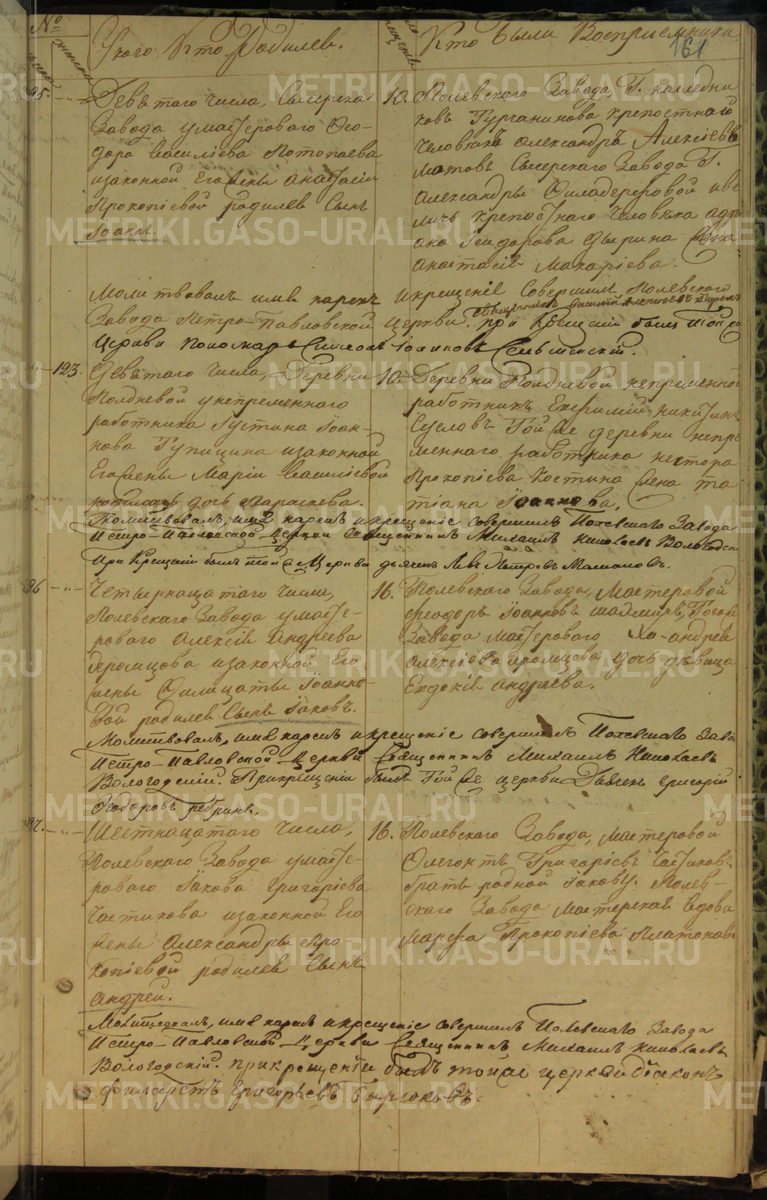 №
У кого Кто Родился.
Кто были Восприемники
161
95.
Девятого числа, Сысерска
Завода у мастероваго Фео-
дора Василиева Потопаева
и законной Его жены Анастасіи
Прокопіевой родился Сынъ
Іоаннъ
10. Полевскаго Завода Г. наследни
ковъ Турчанинова крепостнаго
человека Александръ Алексіевъ
Сысерскаго Завода Г.
Александры
крепостнаго человека
жена
Анастасія Макаріева.
Молитвовалъ имя нарекъ и крещеніе Совершилъ Полевскаго
Завода Петро-Павловской церкви. При Крещеніи былъ той же
Церкви Пономарь Симеонъ Іоанновъ
123.
Девятаго числа, Деревни
Полдневой у непременнаго
работника Іустина Іоан-
нова Тупицина и законной
Его жены Маріи Василіевой
родилась дочь Параскева.
10. Деревни Полдневой непременной
работникъ Евфимій Никитинъ
Сусловъ Той же деревни непре
меннаго работника Нестора
Прокопіева Костина жена Та
тіана Іоаннова.
Молитвовалъ, имя нарекъ и крещеніе совершилъ Полевскаго Завода
Петро-Павловской Церкви Священникъ Михаилъ Николаевъ Вологодскі
При Крещеніи былъ той же Церкви дьячекъ Левъ Петровъ Мамановъ.
96
Четырнацатаго числа,
Полевскаго Завода у масте-
роваго Алексія Андреева
Яромцова и законной Его
жены Филицаты Іоанно-
вой родился Сынъ Іаковъ.
16. Полевскаго Завода, Мастеровой
Феодоръ Іоанновъ Того же
Завода мастероваго Андрея
Алексіева Яромцова дочь девица
Евдокія Андреева.
Молитвовалъ, имя нарекъ и крещеніе совершилъ Полевскаго Заво
Петро-Павловской Церкви Священникъ Михаилъ Николаевъ
Вологодскій. При крещеніи былъ Той же церкви Дьячекъ Григорій
Феодоровъ Ребринъ.
97.
Шестнацатаго числа,
Полевскаго Завода у масте-
роваго Іакова Григоріева
Частикова и законной Его
жены Александры Про
копіевой родился Сынъ
Андрей.
16. Полевскаго Завода, Мастеровой
Григоріевъ Частиковъ
братъ родной Іакову. Полев-
скаго Завода Мастерская Вдова
Марфа Прокопіева Платонова
Молитвовалъ, имя нарекъ и крещеніе совершилъ Полевскаго Завода
Петро-Павловской Церкви Священникъ Михаилъ Николаевъ
Вологодскій. При крещеніи былъ той же церкви діаконъ
Григорьевъ
METRIKI.GASO-URAL.RU